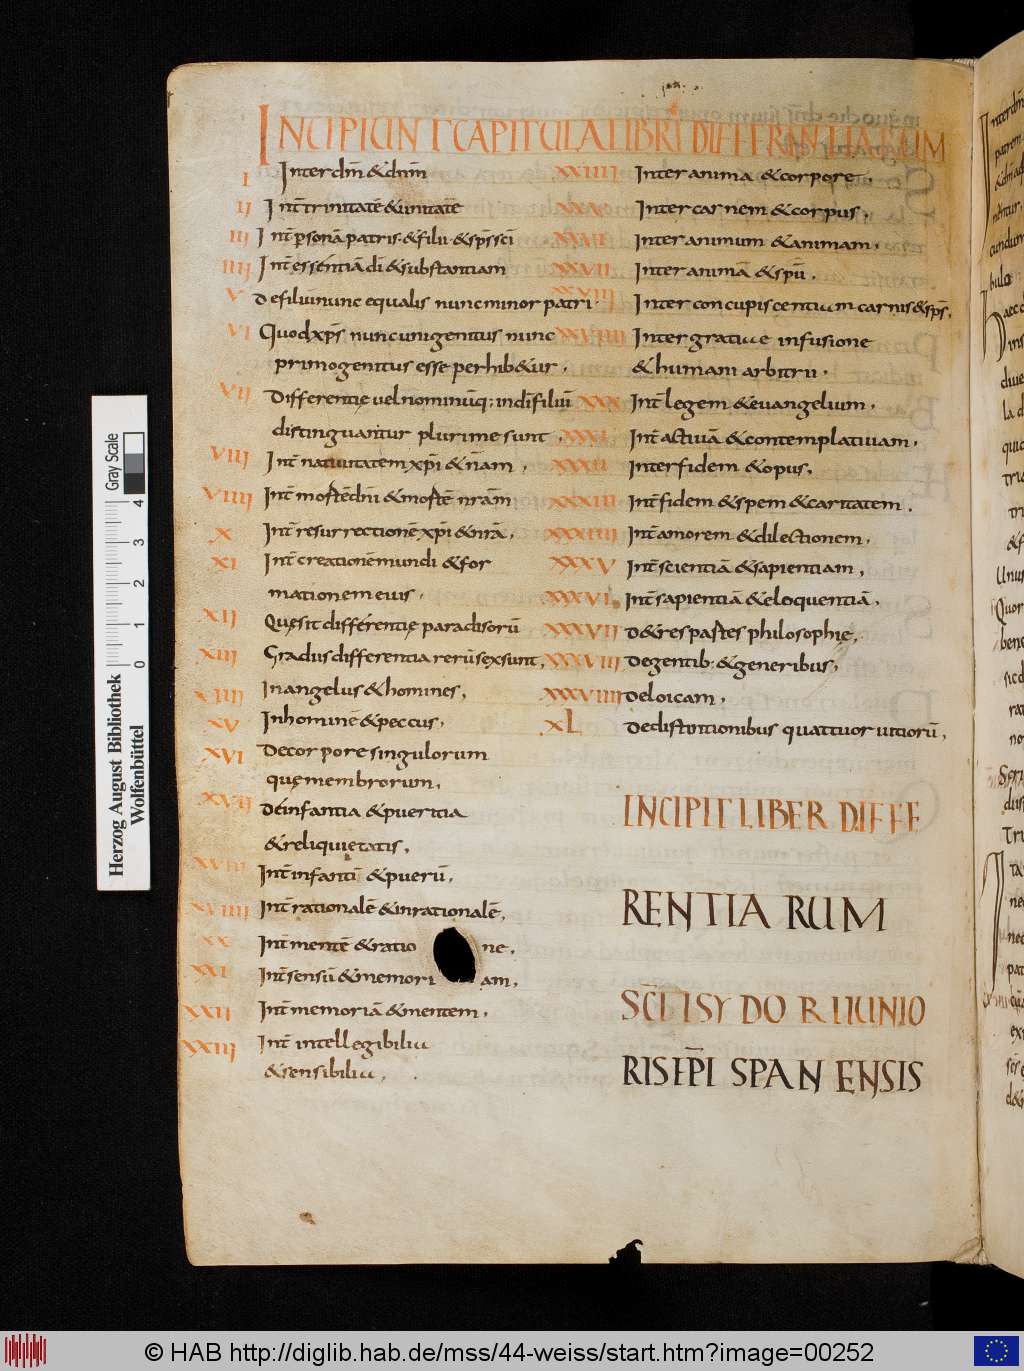 INCIPIUNT CAPITULA LIBRI DIFFERANTIARUM
I Inter dm̄ & dnm̄
II Int̄ trinitatē & unitatē
III Int̄ p̱sonā patris · & filii · & sp̄s sc̄i
IIII Int̄ essentiā dī & substantiam
V De filiū nunc equalis nunc minor patri ·
VI Quod xp̄s nunc unigenitus nunc
primogenitus esse perhib&ur ,
VII Differentię uel nominūq; in dī filiū
distinguantur plurime sunt ,
VIII Int̄ natiuitatem xp̄i & nr̄am ,
VIIII Int̄ mortē dn̄i & mortē nr̄am
X Int̄ resurrectionē xp̄i & nrā ,
XI Int̄ creationē mundi & for
mationem eius ,
XII Quę sit differentię paradisorū
XIII Gradus differentia rerū sex sunt ,
XIIII In angelus & homines ,
XV In hominē & peccus ,
XVI De corpore singulorum
quę membrorum ,
XVII De infantia & pueritia
& reliquię tatis ,
XVIII Int̄ infantū & puerū ,
XVIIII Int̄ rationalē & inrationalē ,
XX Int̄ mentē & ratio ne ,
XXI Int̄ sensū & memori am ,
XXII Int̄ memoriā & mentem ,
XXIII Int̄ intellegibiliu
& sensibiliu ,
XXIIII Inter anima & corpore ,
XXV Inter carnem & corpus ,
XXVI Inter animum & animam ,
XXVII Inter animā & spū ,
XXVIII Inter concupiscentium carnis & sp̄s ,
XXVIIII Inter gratiue infusione
& humani arbitrii ,
XXX Int̄ legem & euangelium ,
XXXI Int̄ actiuā & contemplatiuam ,
XXXII Inter fidem & opus ,
XXXIII Int̄ fidem & spem & caritatem ,
XXXIIII Int̄ amorem & dilectionem ,
XXXV Int̄ scientiā & sapientiam ,
XXXVI Int̄ sapientiā & eloquentiā ,
XXXVII D& res partes philosophię ,
XXXVIII De gentib: & generibus ,
XXXVIIII De loicam ,
XL De distintionibus quattuor uitiorū ,
INCIPIT LIBER DIFFE
RENTIARUM
SC̄I ISYDORI IUNIO
RIS EP̄I SPANENSIS
Herzog August Bibliothek
Wolfenbüttel
Gray Scale
0 1 2 3 4
© HAB http://diglib.hab.de/mss/44-weiss/start.htm?image=00252